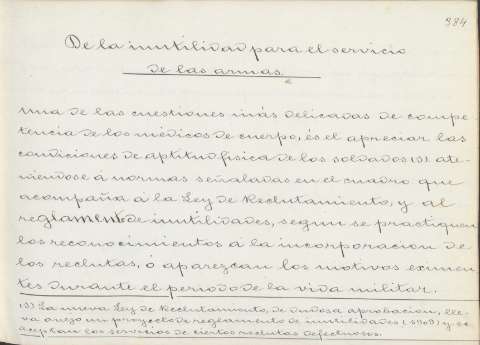 384
De la inutilidad para el servicio
de las armas.
Una de las cuestiones más delicadas de compe-
tencia de los médicos de cuerpo, és el apreciar las
condiciones de aptitud fisica de los soldados (5) ate-
niendose á normas señaladas en el cuadro que
acompaña a la Ley de Reclutamiento, y al
reglamento de inutilidades, segun se practiquen
los reconocimientos á la incorporacion de
los reclutas, ó aparezcan los motivos eximen-
tes durante el periodo de la vida militar.
La nueva Ley de Reclutamiento, de dudosa aprobacion, lle-
va anejo un proyecto de reglamento de inutilidades (1909) y se
aceptan los servicios de ciertos reclutas defectuosos.